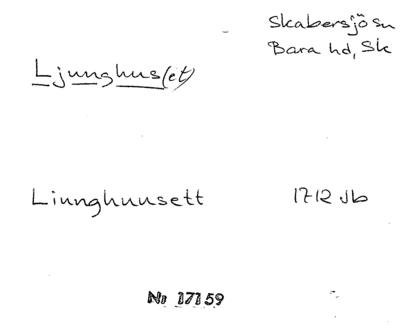 Skabersjö sn
Bara hd, Sk
Ljunghus(et)
Liunghuusett 1712 Jb
Nr 17159